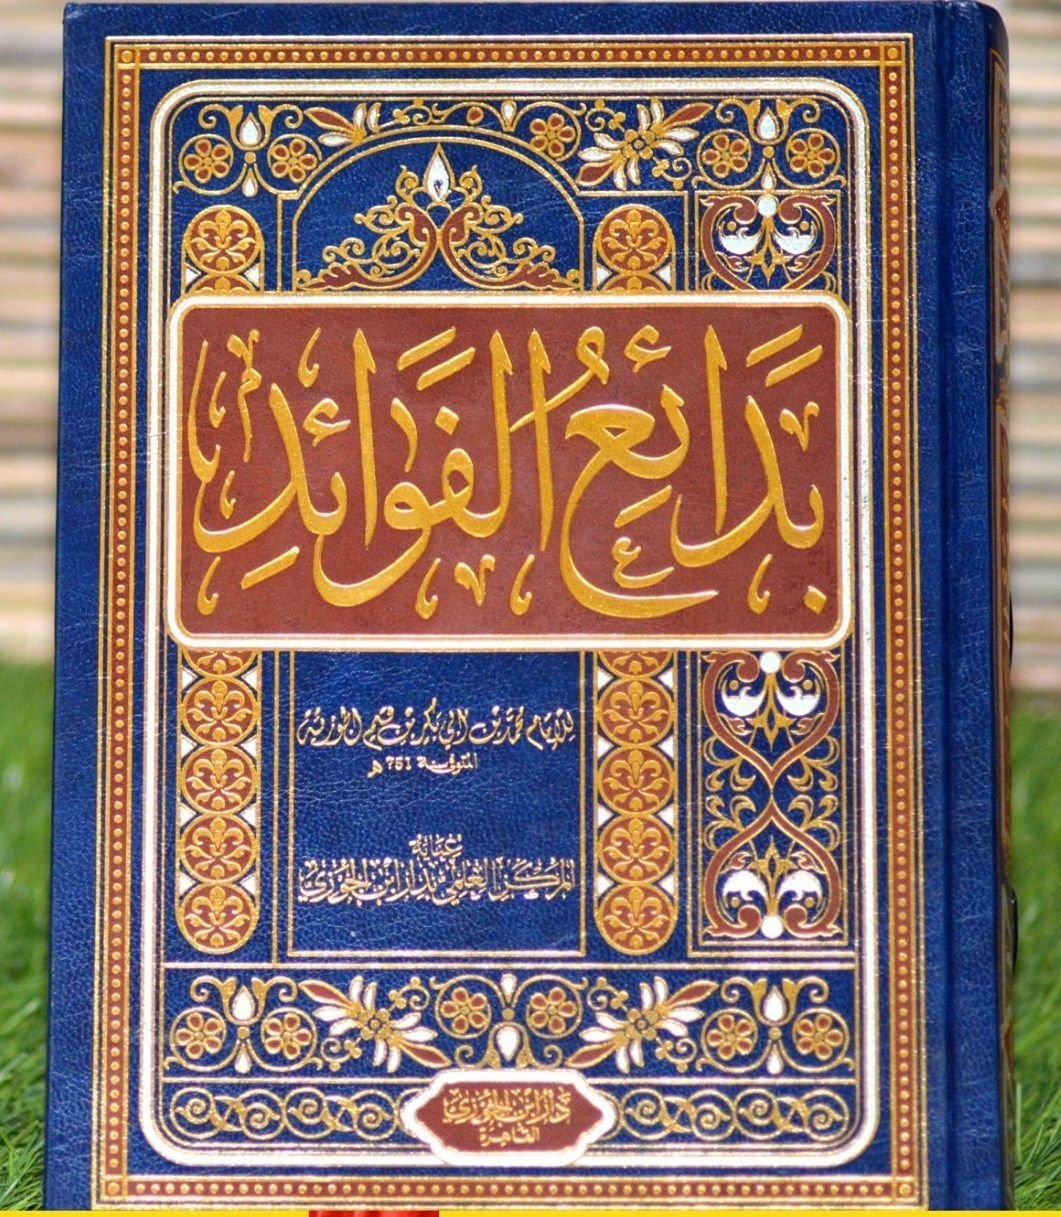 بَدَائِعُ الفَوَائِدِ
للإمام محمد بن أبي بكر بن قيم الجوزية
المتوفى سنة 751 هـ
عناية
المركز العلمي بدار ابن الجوزي
دار ابن الجوزي
القاهرة